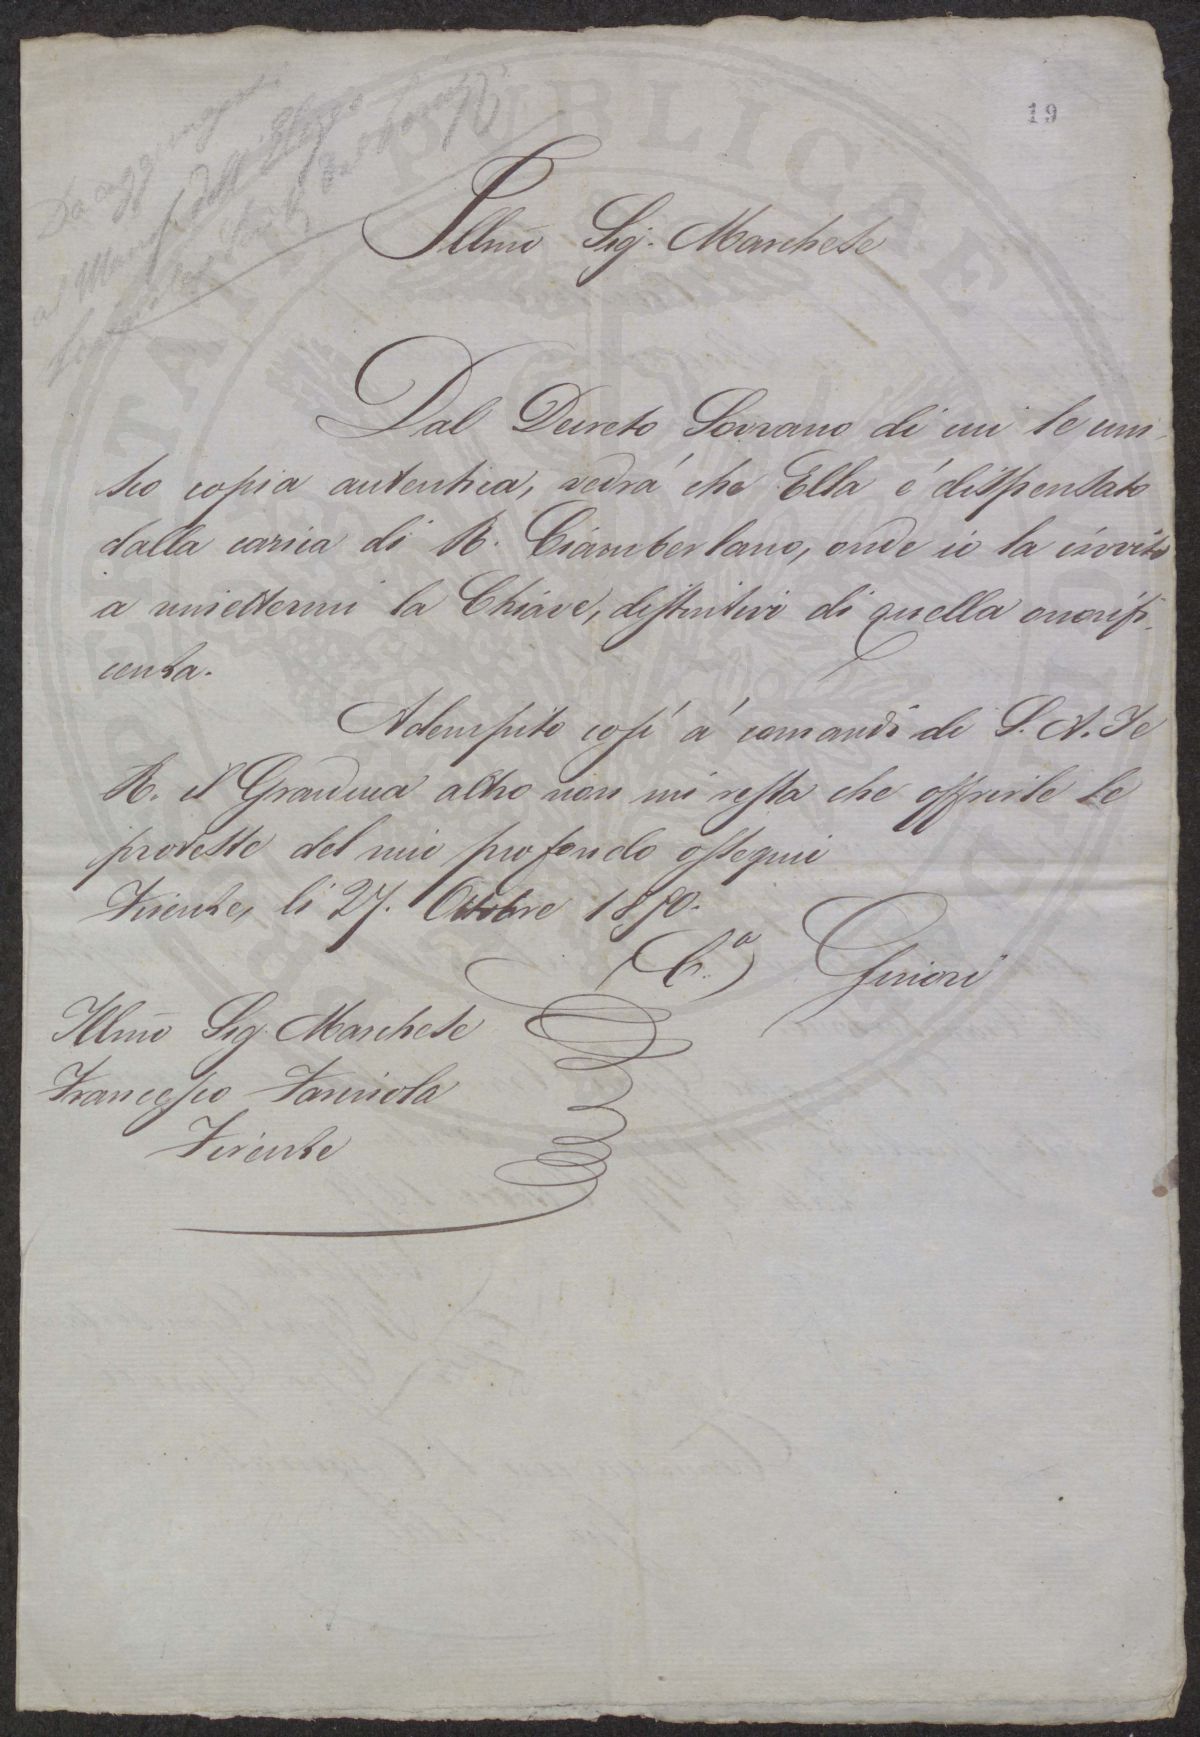 19
Da aggiungersi
al
Illmo Sig. Marchese
Dal Decreto Sovrano di cui le uni-
sco copia autentica, vedrà che Ella é dispensato
dalla carica di R. Ciamberlano, onde io la invito
a rimettermi la Chiave, distintivi di quella onorifi-
cenza.
Adempito così á comandi di S. A. I e
R. il Granduca altro non mi resta che offrirle le
proteste del mio profondo ossequi
Firenze, li 27. Ottobre 18
(C.a) Ginori
Illmo Sig. Marchese
Francesco Farinola
Firenze